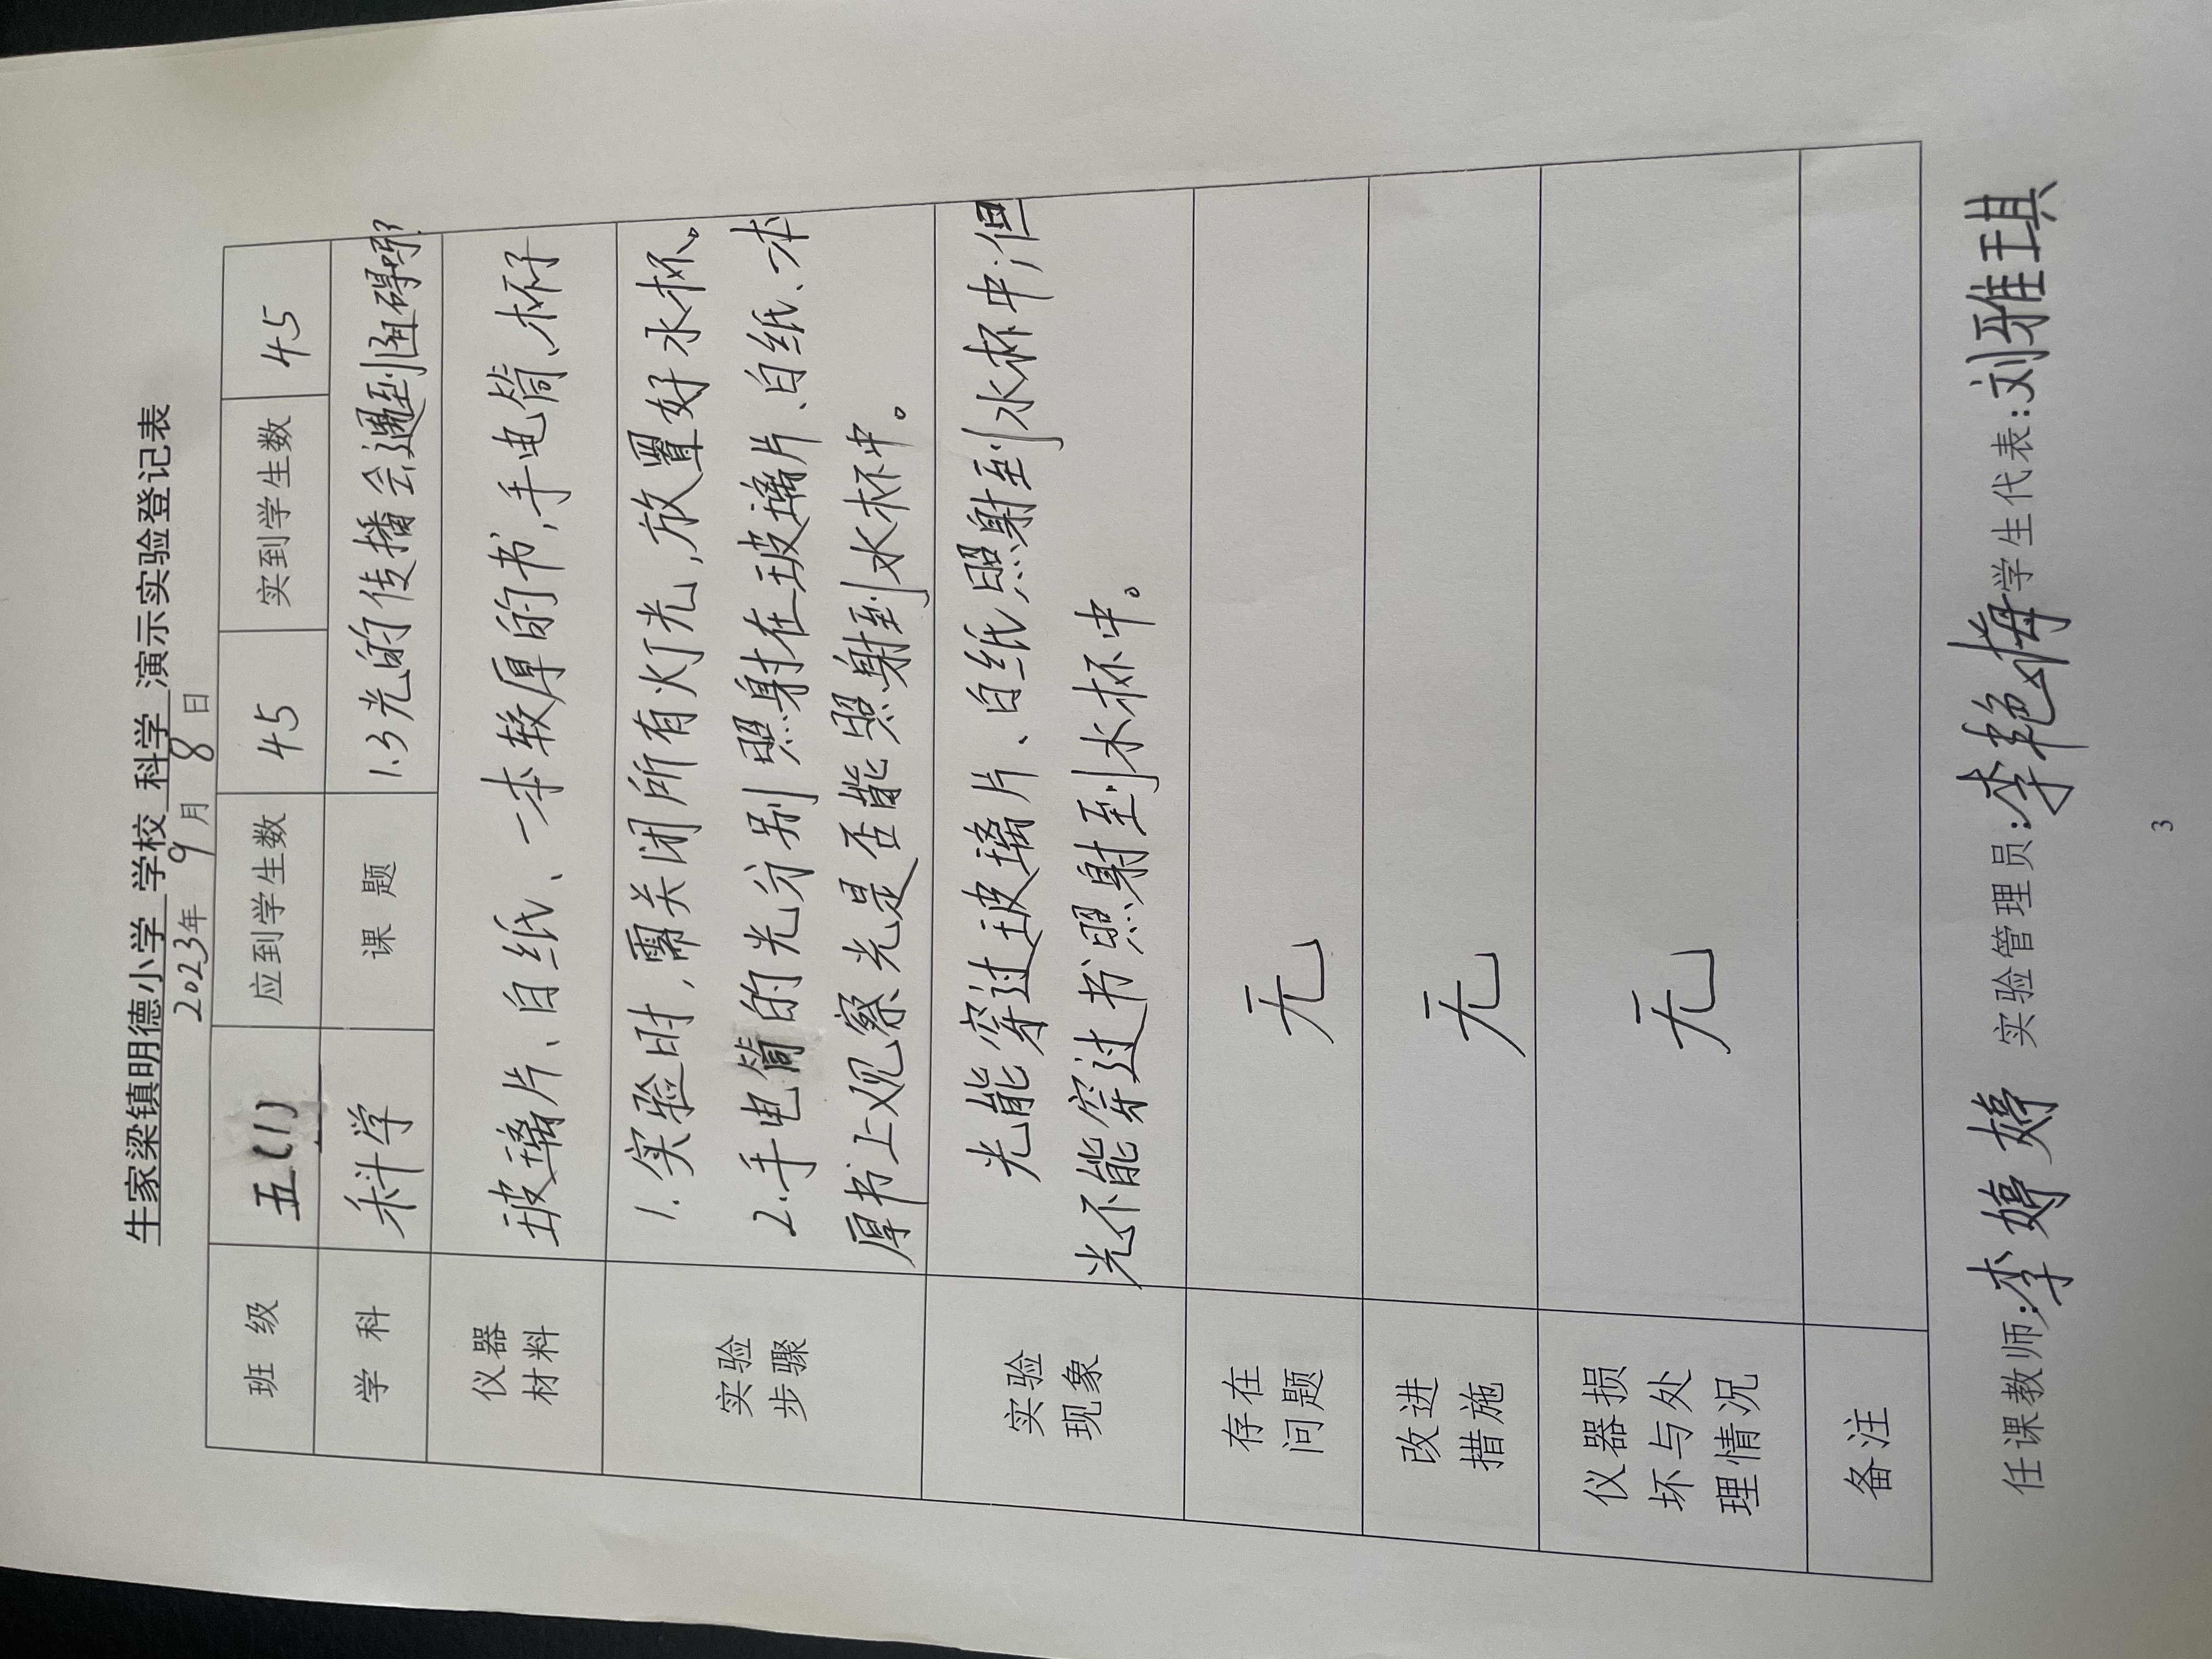 生家梁镇明德小学 学校 科学 演示实验登记表
2023年 9 月 8 日
班 级 五(1) 应到学生数 45 实到学生数 45
学 科 科学 课 题 1.3光的传播会遇到阻碍吗?
仪器
材料
玻璃片、白纸、一本较厚的书,手电筒、杯子
实验
步骤
1.实验时,需关闭所有灯光,放置好水杯。
2.手电筒的光分别照射在玻璃片、白纸、一本
厚书上观察光是否能照射到水杯中。
实验
现象
光能穿过玻璃片、白纸照射到水杯中;但
光不能穿过书照射到水杯中。
存在
问题
无
改进
措施
无
仪器损
坏与处
理情况
无
备注
任课教师:李婷婷 实验管理员:李艳梅 学生代表:刘雅琪
3